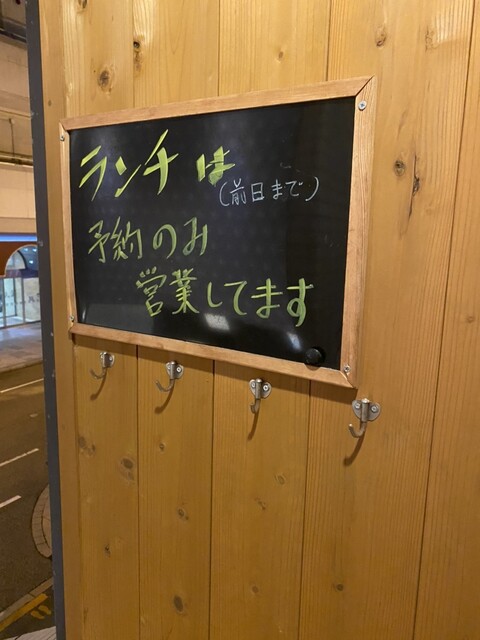 ランチは
(前日まで)
予約のみ
営業してます